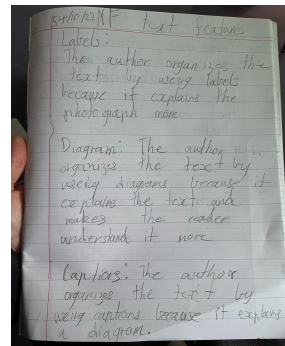 NF text features
Labels:
The author organizes the
text by useing labels
because it explains the
photograph more
Diagram: The author
organizes the text by
useing diagrams because it
explains the text and
makes the reader
understand it more
Captions: The author
organizes the text by
useing captions because it explains
a diagram.